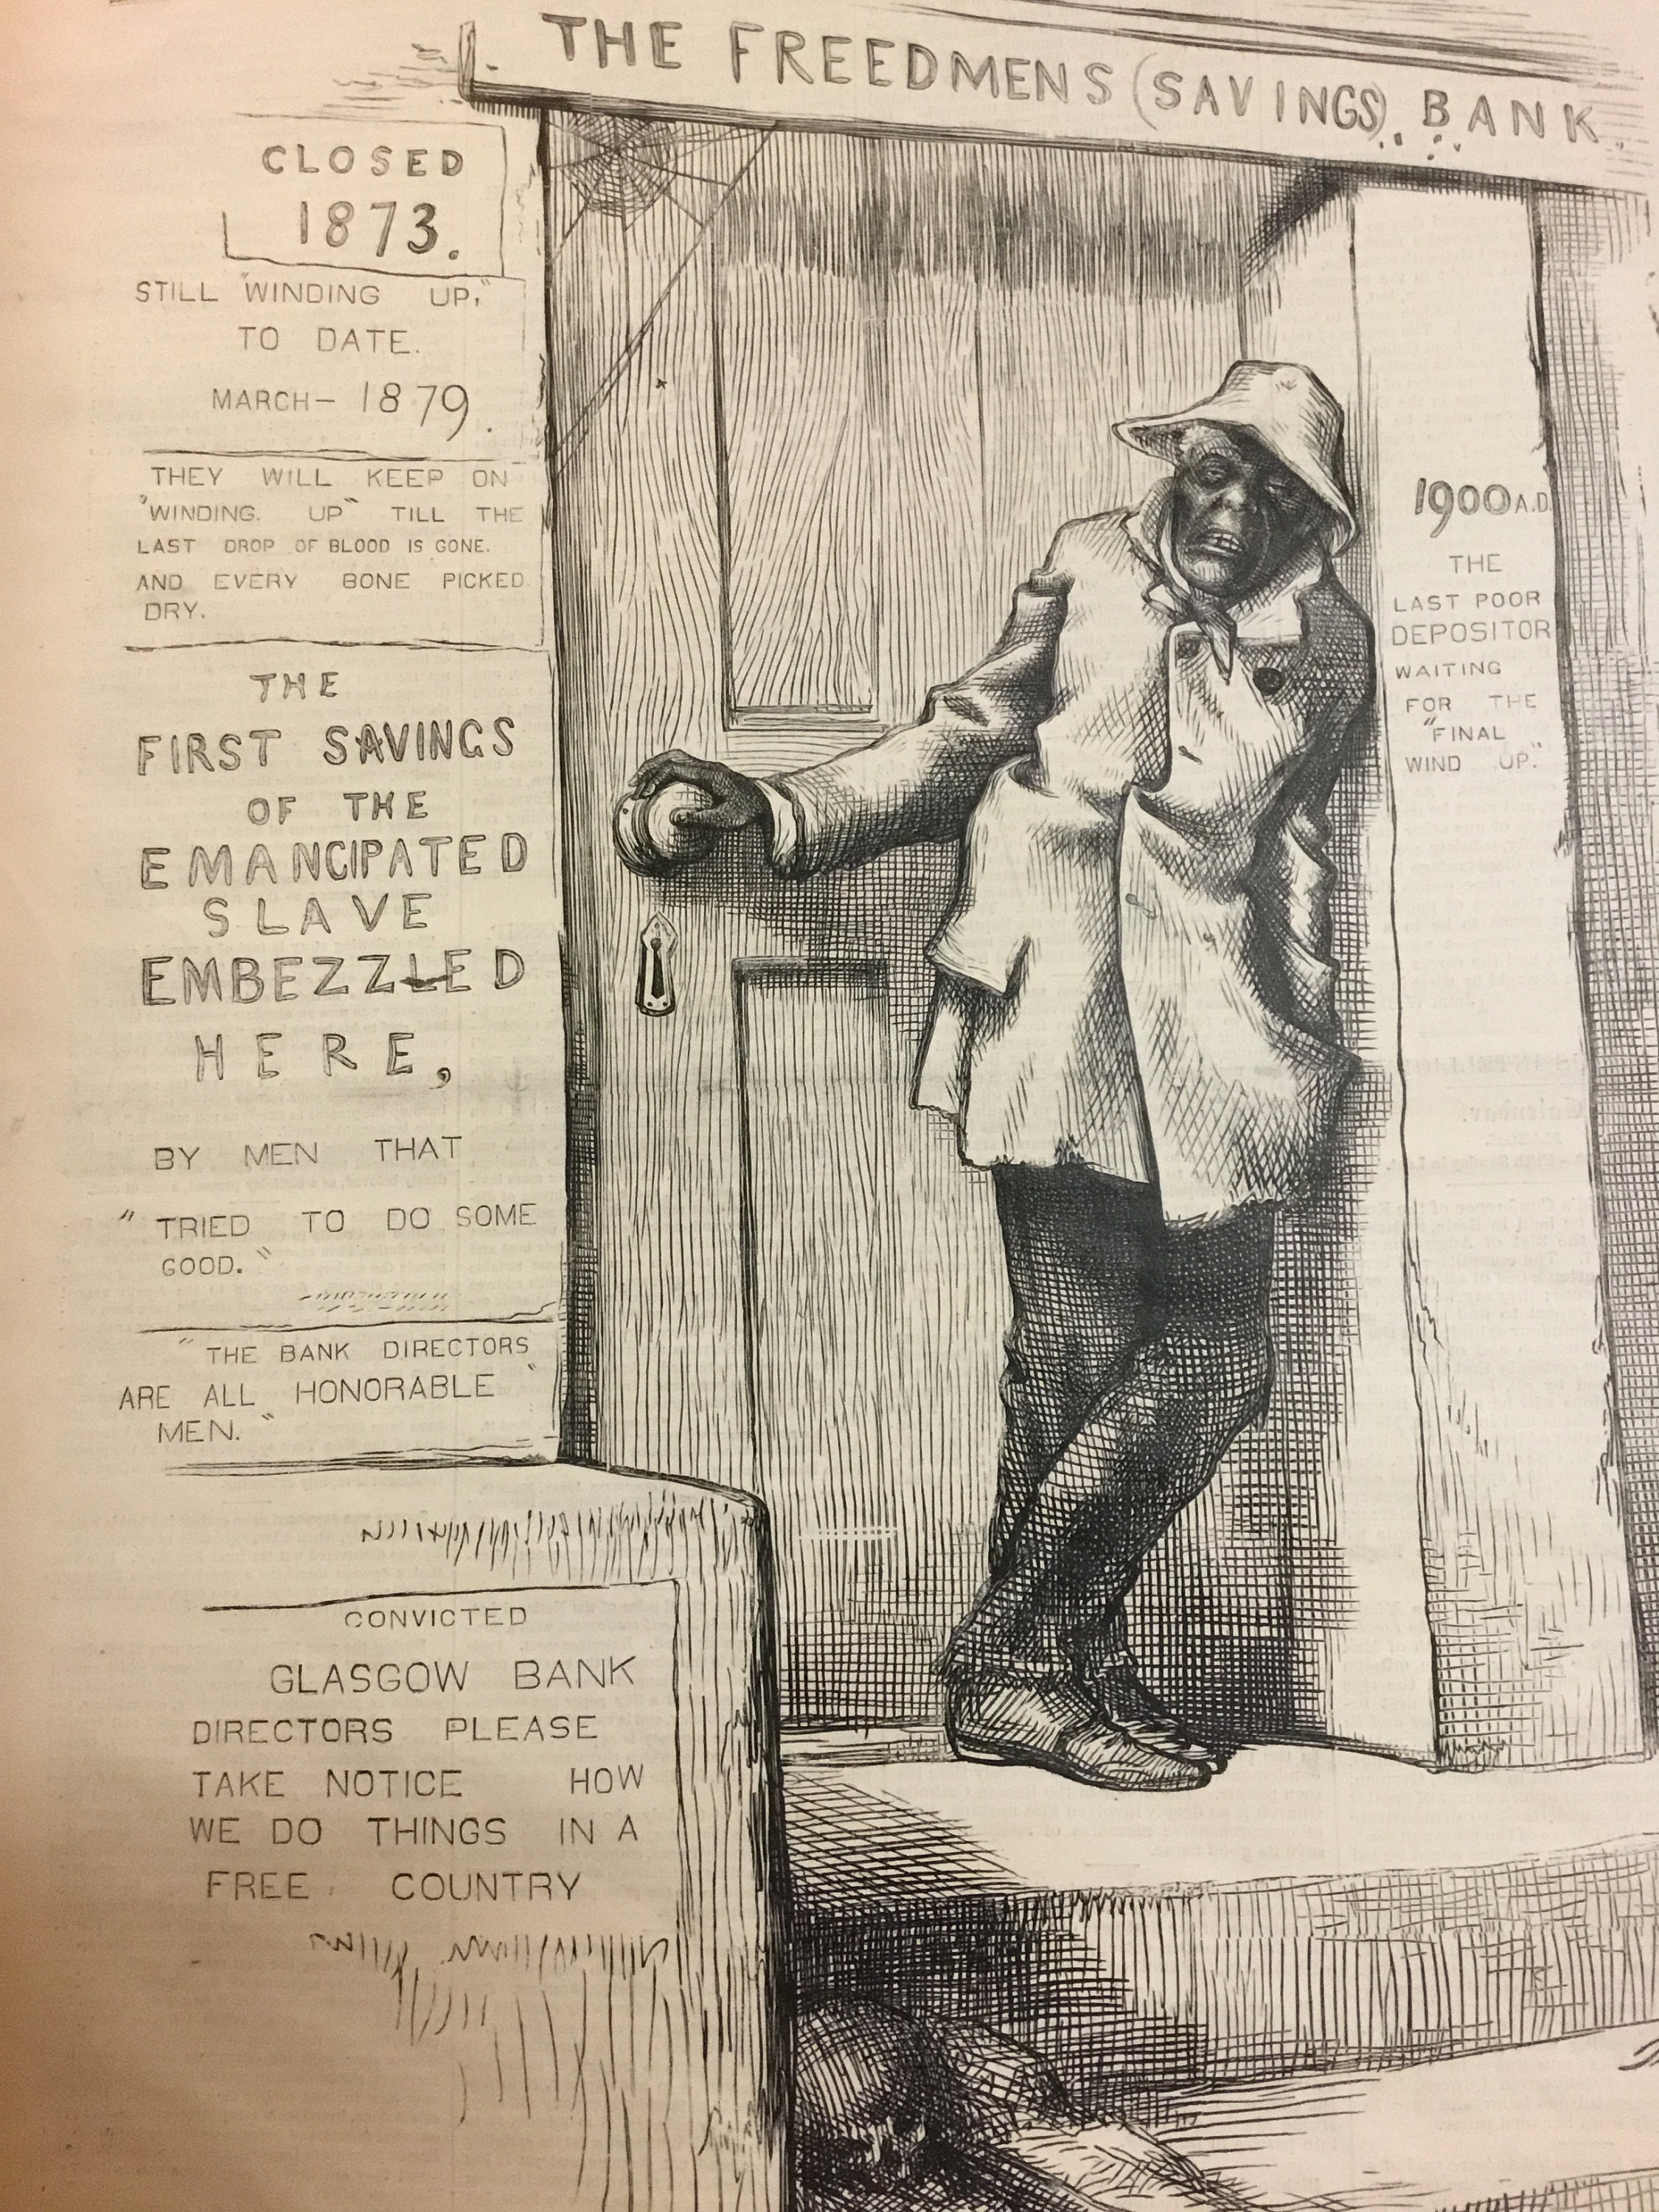 THE FREEDMENS (SAVINGS) BANK.
CLOSED
1873.
STILL "WINDING UP,"
TO DATE.
MARCH — 1879.
THEY WILL KEEP ON
"WINDING. UP" TILL THE
LAST DROP OF BLOOD IS GONE.
AND EVERY BONE PICKED
DRY.
THE
FIRST SAVINGS
OF THE
EMANCIPATED
SLAVE
EMBEZZLED
HERE,
BY MEN THAT
"TRIED TO DO SOME
GOOD."
"THE BANK DIRECTORS"
ARE ALL HONORABLE
MEN."
CONVICTED
GLASGOW BANK
DIRECTORS PLEASE
TAKE NOTICE HOW
WE DO THINGS IN A
FREE COUNTRY
1900 A.D.
THE
LAST POOR
DEPOSITOR
WAITING
FOR THE
"FINAL
WIND UP."